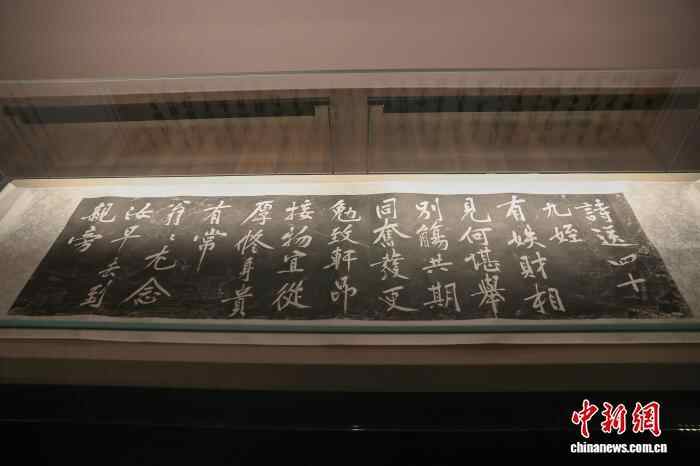 詩送四十
九姪
有妷財相
見何堪舉
別觴共期
同奮發更
勉致軒昂
接物宜從
厚脩身貴
有常
翁〻尤念
汝早去到
親旁
中新网
chinanews.com